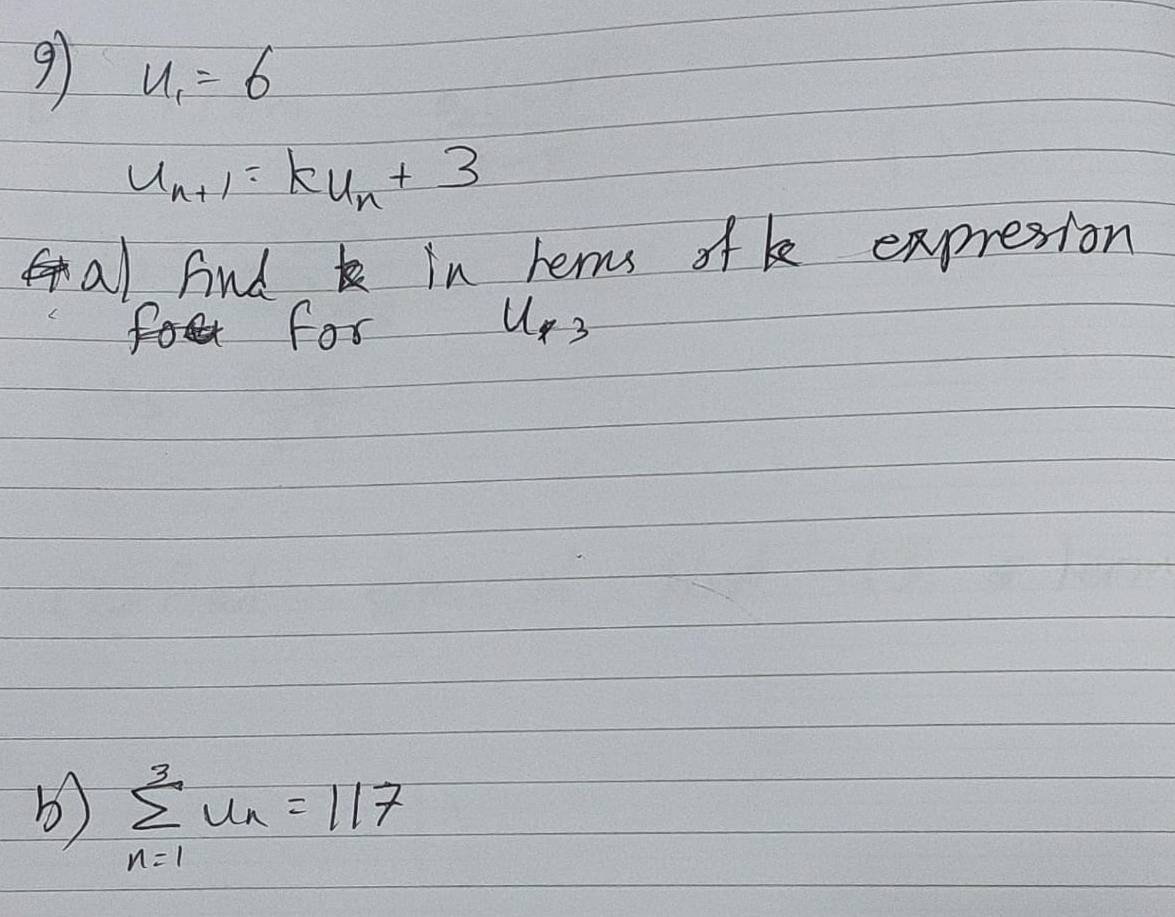 9) u₁ = 6
uₙ₊₁ = kuₙ + 3
a) find in terms of k expresion
for u₃
b) ∑ₙ₌₁³ uₙ = 117